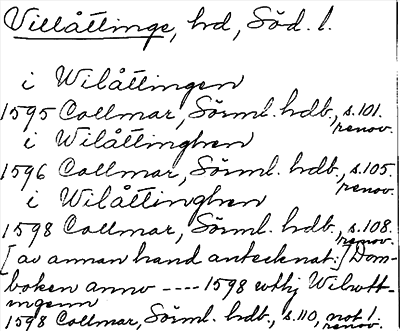 Villåttinge, hd, Söd. l.
i Wilåttingen
1595 Collmar, Sörml. hdb., s. 101.
renov.
i Wilåttinghen
1596 Collmar, Sörml. hdb., s. 105.
renov.
i Wilåttinghen
1598 Collmar, Sörml. hdb., s. 108.
renov.
[av annan hand antecknat:] Dom-
boken anno ---- 1598 uthj Wilott-
ingenn
1598 Collmar, Sörml. hdb., s. 110, not 1.
renov.